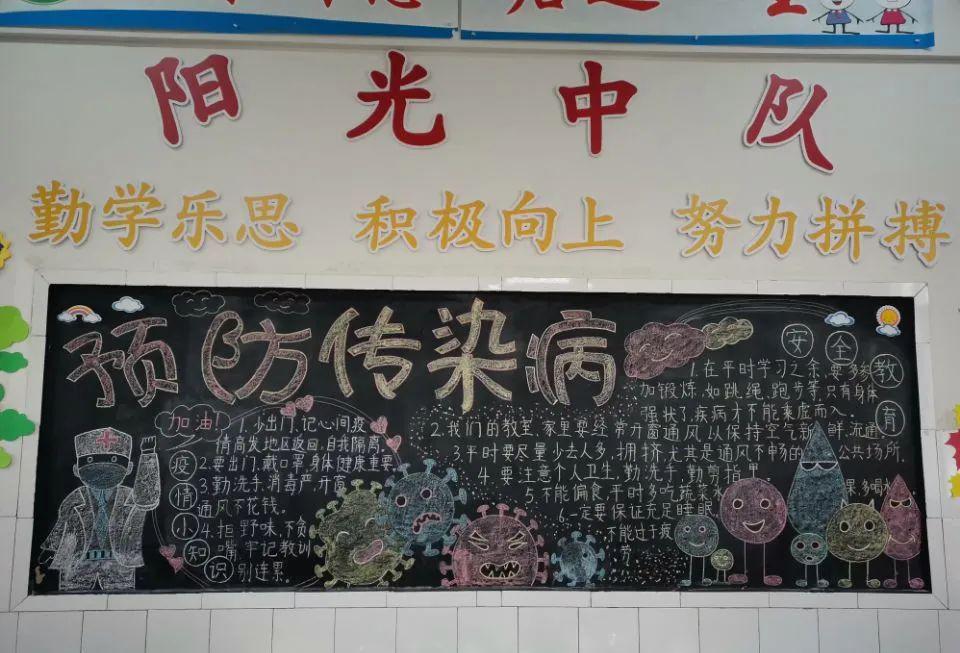 阳光中队
勤学乐思 积极向上 努力拼搏
预防传染病
加油!
疫情小知识
1.少出门,记心间,疫
情高发地区返回,自我隔离。
2.要出门,戴口罩,身体健康重要
3.勤洗手,消毒严,开窗
通风不花钱。
4.拒野味,不贪
嘴,牢记教训
别连累。
安全教育
1.在平时学习之余要多
加锻炼,如跳绳、跑步等,只有身体
强状了,疾病才不能乘虚而入。
2.我们的教室、家里要经常开窗通风以保持空气新鲜、流通。
3.平时要尽量少去人多,拥挤尤其是通风不畅的公共场所。
4.要注意个人卫生,勤洗手勤剪指甲
5.不能偏食平时多吃蔬菜水果,多喝水
6.一定要保证充足睡眠,
不能过于疲
劳